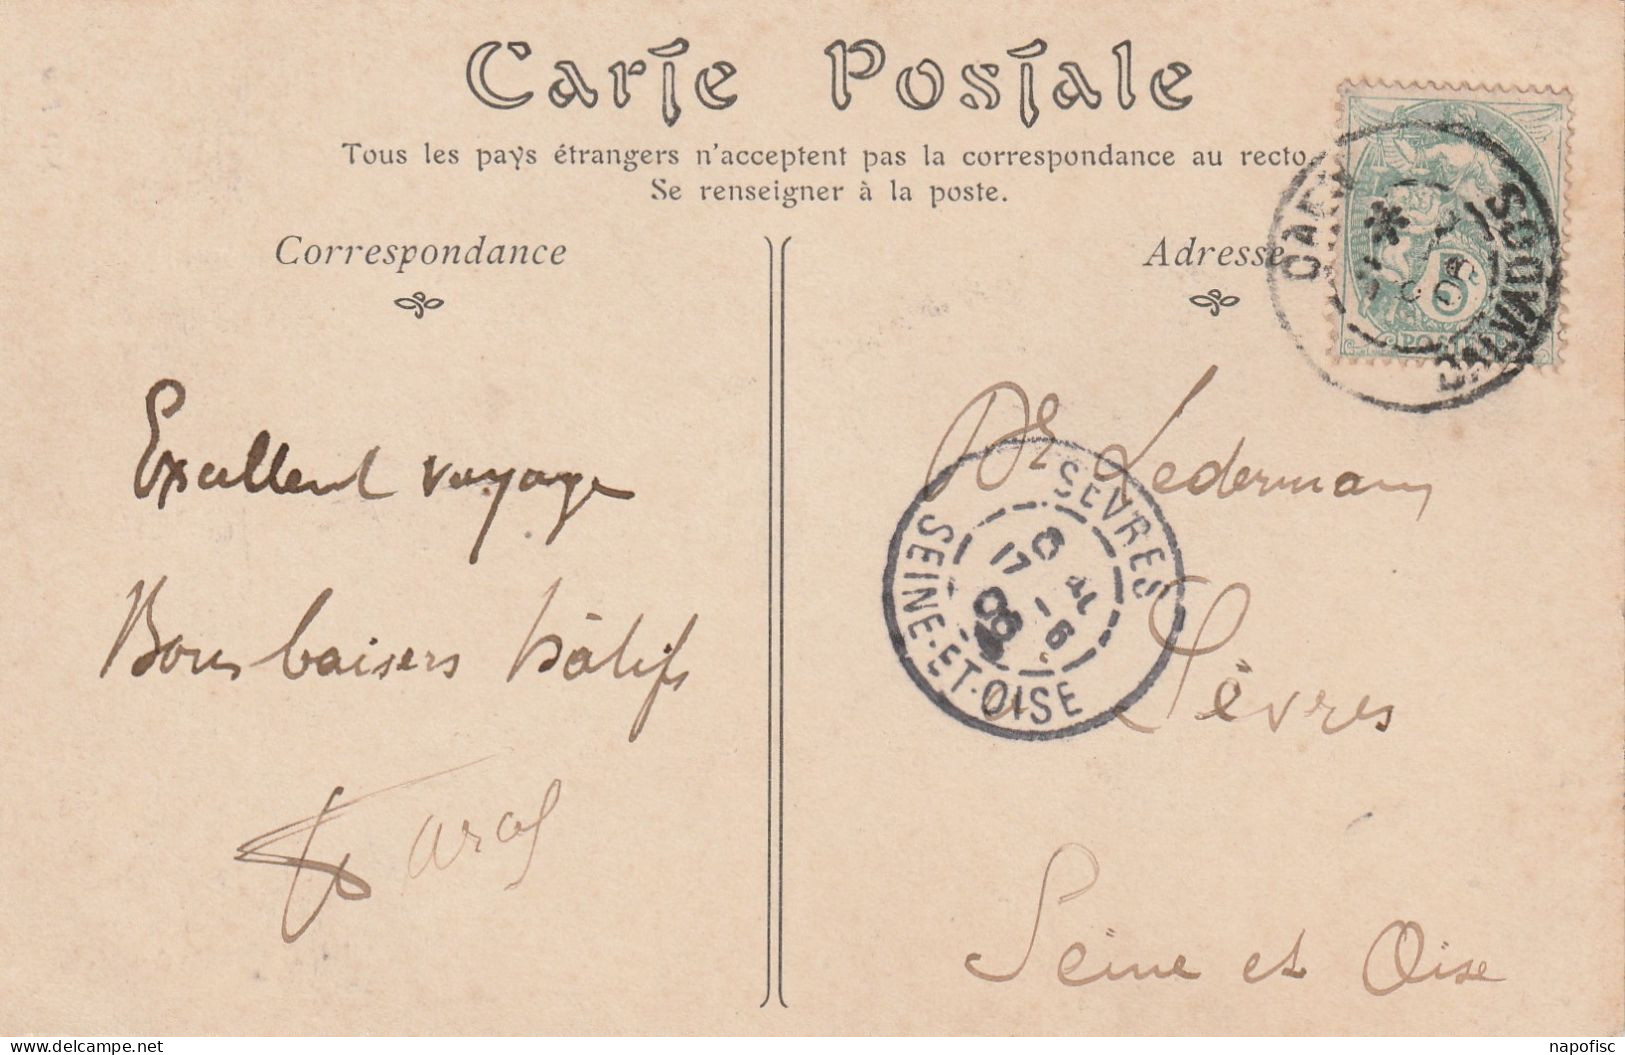 Carte Postale
Tous les pays étrangers n'acceptent pas la correspondance au recto
Se renseigner à la poste.
Correspondance
Adresse
CAEN
CALVADOS
5
POSTES
Excellent voyage
Bons baisers hâtifs
Dr Ledermann
SEVRES
17
-6
08
SEINE-ET-OISE
Sèvres
Seine et Oise
www.delcampe.net
napofisc